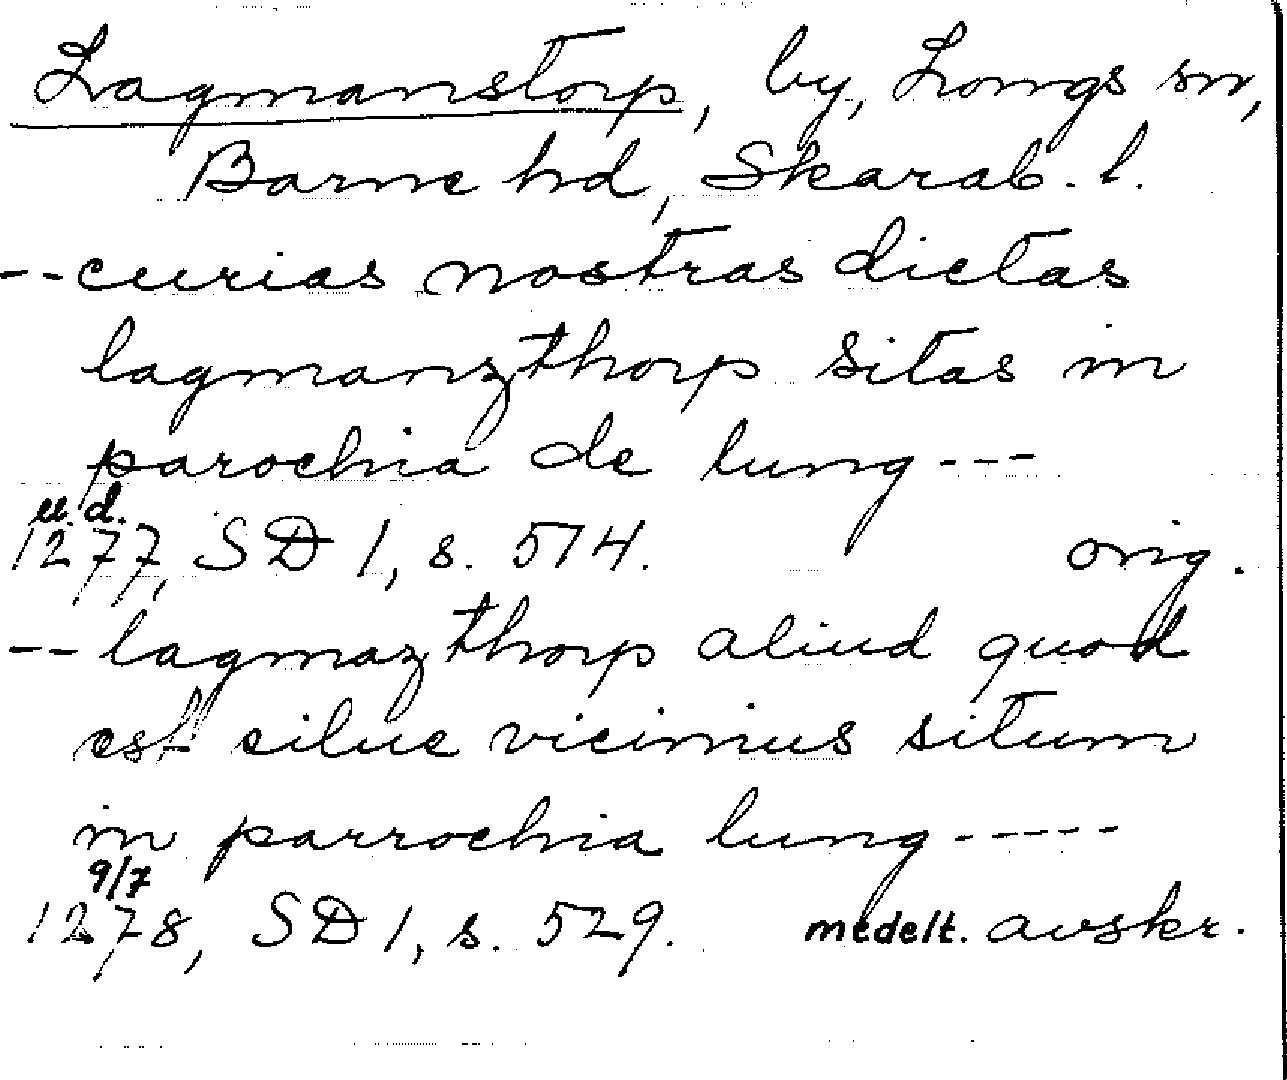 Lagmanstorp, by, Longs sn,
Barne hd, Skarab. l.
--curias nostras dictas
lagmanzthorp sitas in
parochia de lung---
u.d.
1277, SD 1, s. 514. orig.
--lagmazthorp aliud quod
est silue vicinius situm
in parrochia lung-----
9/7
1278, SD 1, s. 529. medelt. avskr.